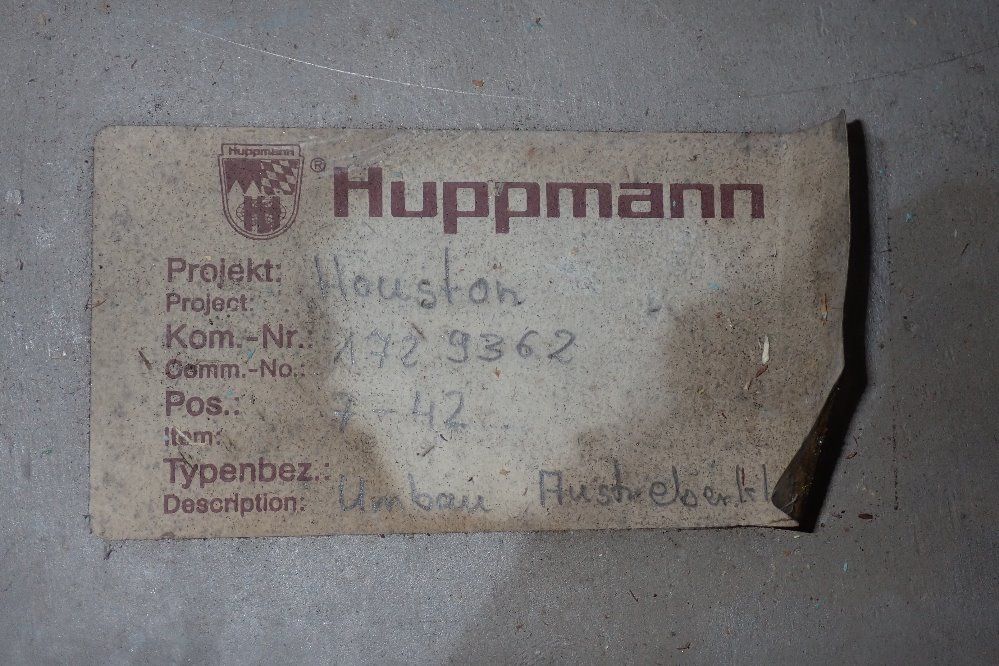 Huppmann
® Huppmann
Projekt: Houston
Project:
Kom.-Nr.: 172 9362
Comm.-No.:
Pos.: 7-42
Item:
Typenbez.:
Description: Umbau